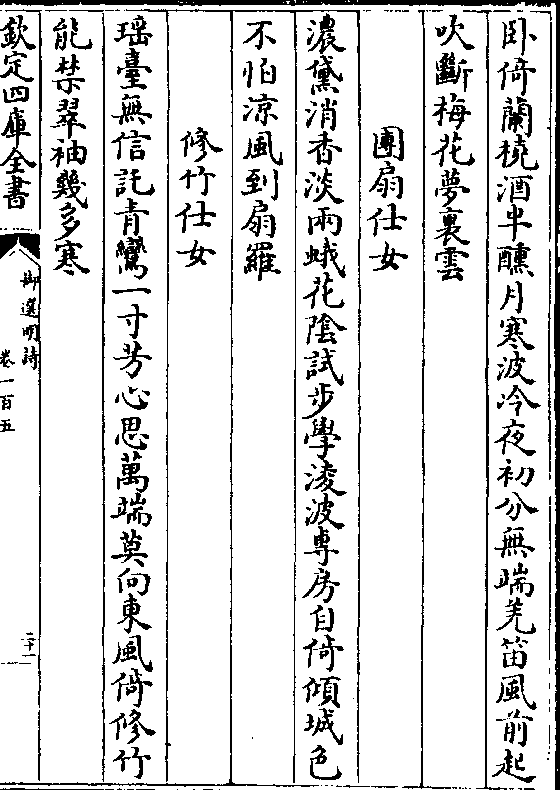 卧倚蘭橈酒半醺月寒波冷夜初分無端羌笛風前起
吹斷梅花夢裏雲
團扇仕女
濃黛消香淡兩蛾花陰試步學淩波專房自倚傾城色
不怕涼風到扇羅
修竹仕女
瑶臺無信託青鸞一寸芳心思萬端莫向東風倚修竹
能禁翠袖幾多寒
欽定四庫全書
御選明詩
卷一百五
二十一